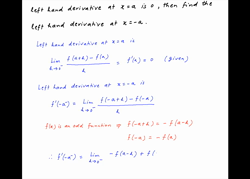 left hand derivative at x=a is 0, then find the
left hand derivative at x=-a.
Left hand derivative at x=a is
lim h→0⁻ f(a+h)-f(a) / h = f'(a⁻) = 0 (given)
Left hand derivative at x=-a is
f'(-a⁻) = lim h→0⁻ f(-a+h)-f(-a) / h
f(x) is an odd function ⇒ f(-a+h) = -f(a-h)
f(-a) = -f(a)
∴ f'(-a⁻) = lim h→0⁻ -f(a-h)+f(